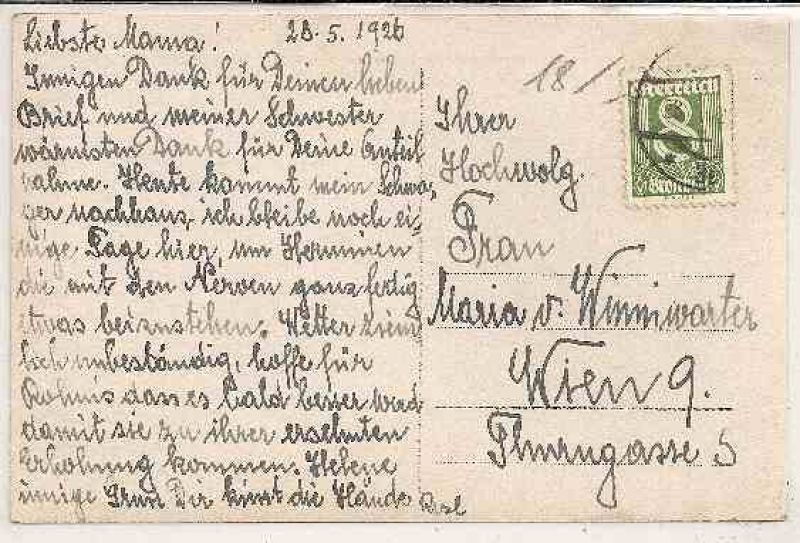 Liebste Mama! 28.5.1926
Innigen Dank für Deinen lieben
Brief und meiner Schwester
wärmsten Dank für Deine Anteil
nahme. Heute kommt mein Schwa,
ger nachhaus, ich bleibe noch ei,
nige Tage hier, um Herminen
die mit den Nerven ganz fertig
etwas beizustehen. Wetter ziem
lich unbeständig, hoffe für
dass es bald besser wird
damit sie zu ihrer ersehnten
Erholung kommen. Helene
innige Grüsse Dir küsst die Hände
18/
Österreich
8
Ihrer
Hochwolg.
Frau
Maria v. Winiwarter
Wien 9.
Thurngasse 5